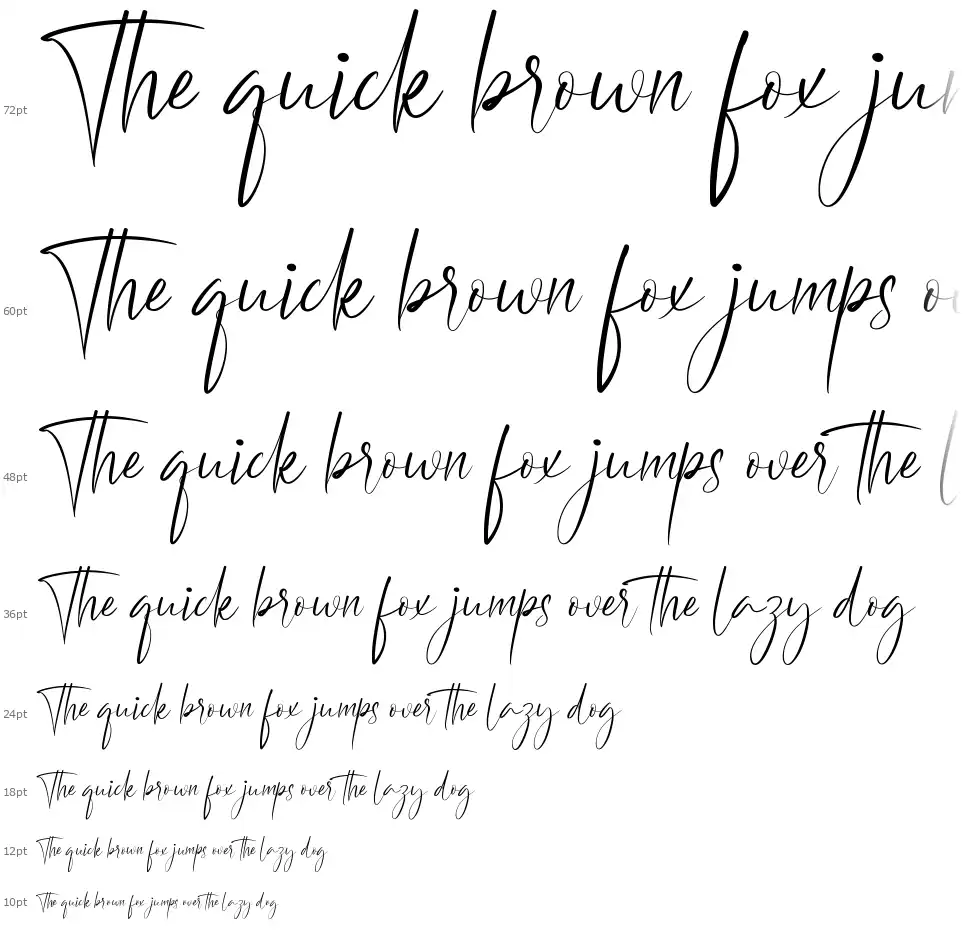 72pt The quick brown fox jun
60pt The quick brown fox jumps ov
48pt The quick brown fox jumps over the l
36pt The quick brown fox jumps over the lazy dog
24pt The quick brown fox jumps over the lazy dog
18pt The quick brown fox jumps over the lazy dog
12pt The quick brown fox jumps over the lazy dog
10pt The quick brown fox jumps over the lazy dog